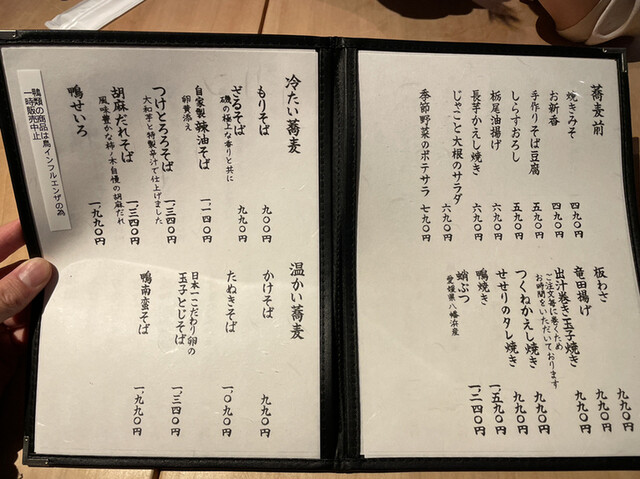 蕎麦前
焼きみそ 四九〇円
お新香 四九〇円
手作りそば豆腐 五九〇円
しらすおろし 五九〇円
栃尾油揚げ 六九〇円
長芋かえし焼き 六九〇円
じゃこと大根のサラダ 六九〇円
季節野菜のポテサラ 七九〇円
板わさ 九九〇円
竜田揚げ 九九〇円
出汁巻き玉子焼き 九九〇円
ご注文毎に巻くため
お時間をいただいております
つくねかえし焼き 九九〇円
せせりのタレ焼き 九九〇円
鴨焼き 一、五九〇円
蛸ぶつ 一、二四〇円
愛媛県八幡浜産
冷たい蕎麦
もりそば 九〇〇円
ざるそば 九九〇円
磯の極上な香りと共に
自家製 辣油そば 一、一四〇円
卵黄添え
つけとろろそば 一、三四〇円
大和芋と特製辛汁で仕上げました
胡麻だれそば 一、三四〇円
風味豊かな柿ノ木自慢の胡麻だれ
鴨せいろ 一、九九〇円
鴨類の商品は鳥インフルエンザの為
一時販売中止
温かい蕎麦
かけそば 九九〇円
たぬきそば 一、〇九〇円
日本一こだわり卵の
玉子とじそば 一、三四〇円
鴨南蛮そば 一、九九〇円